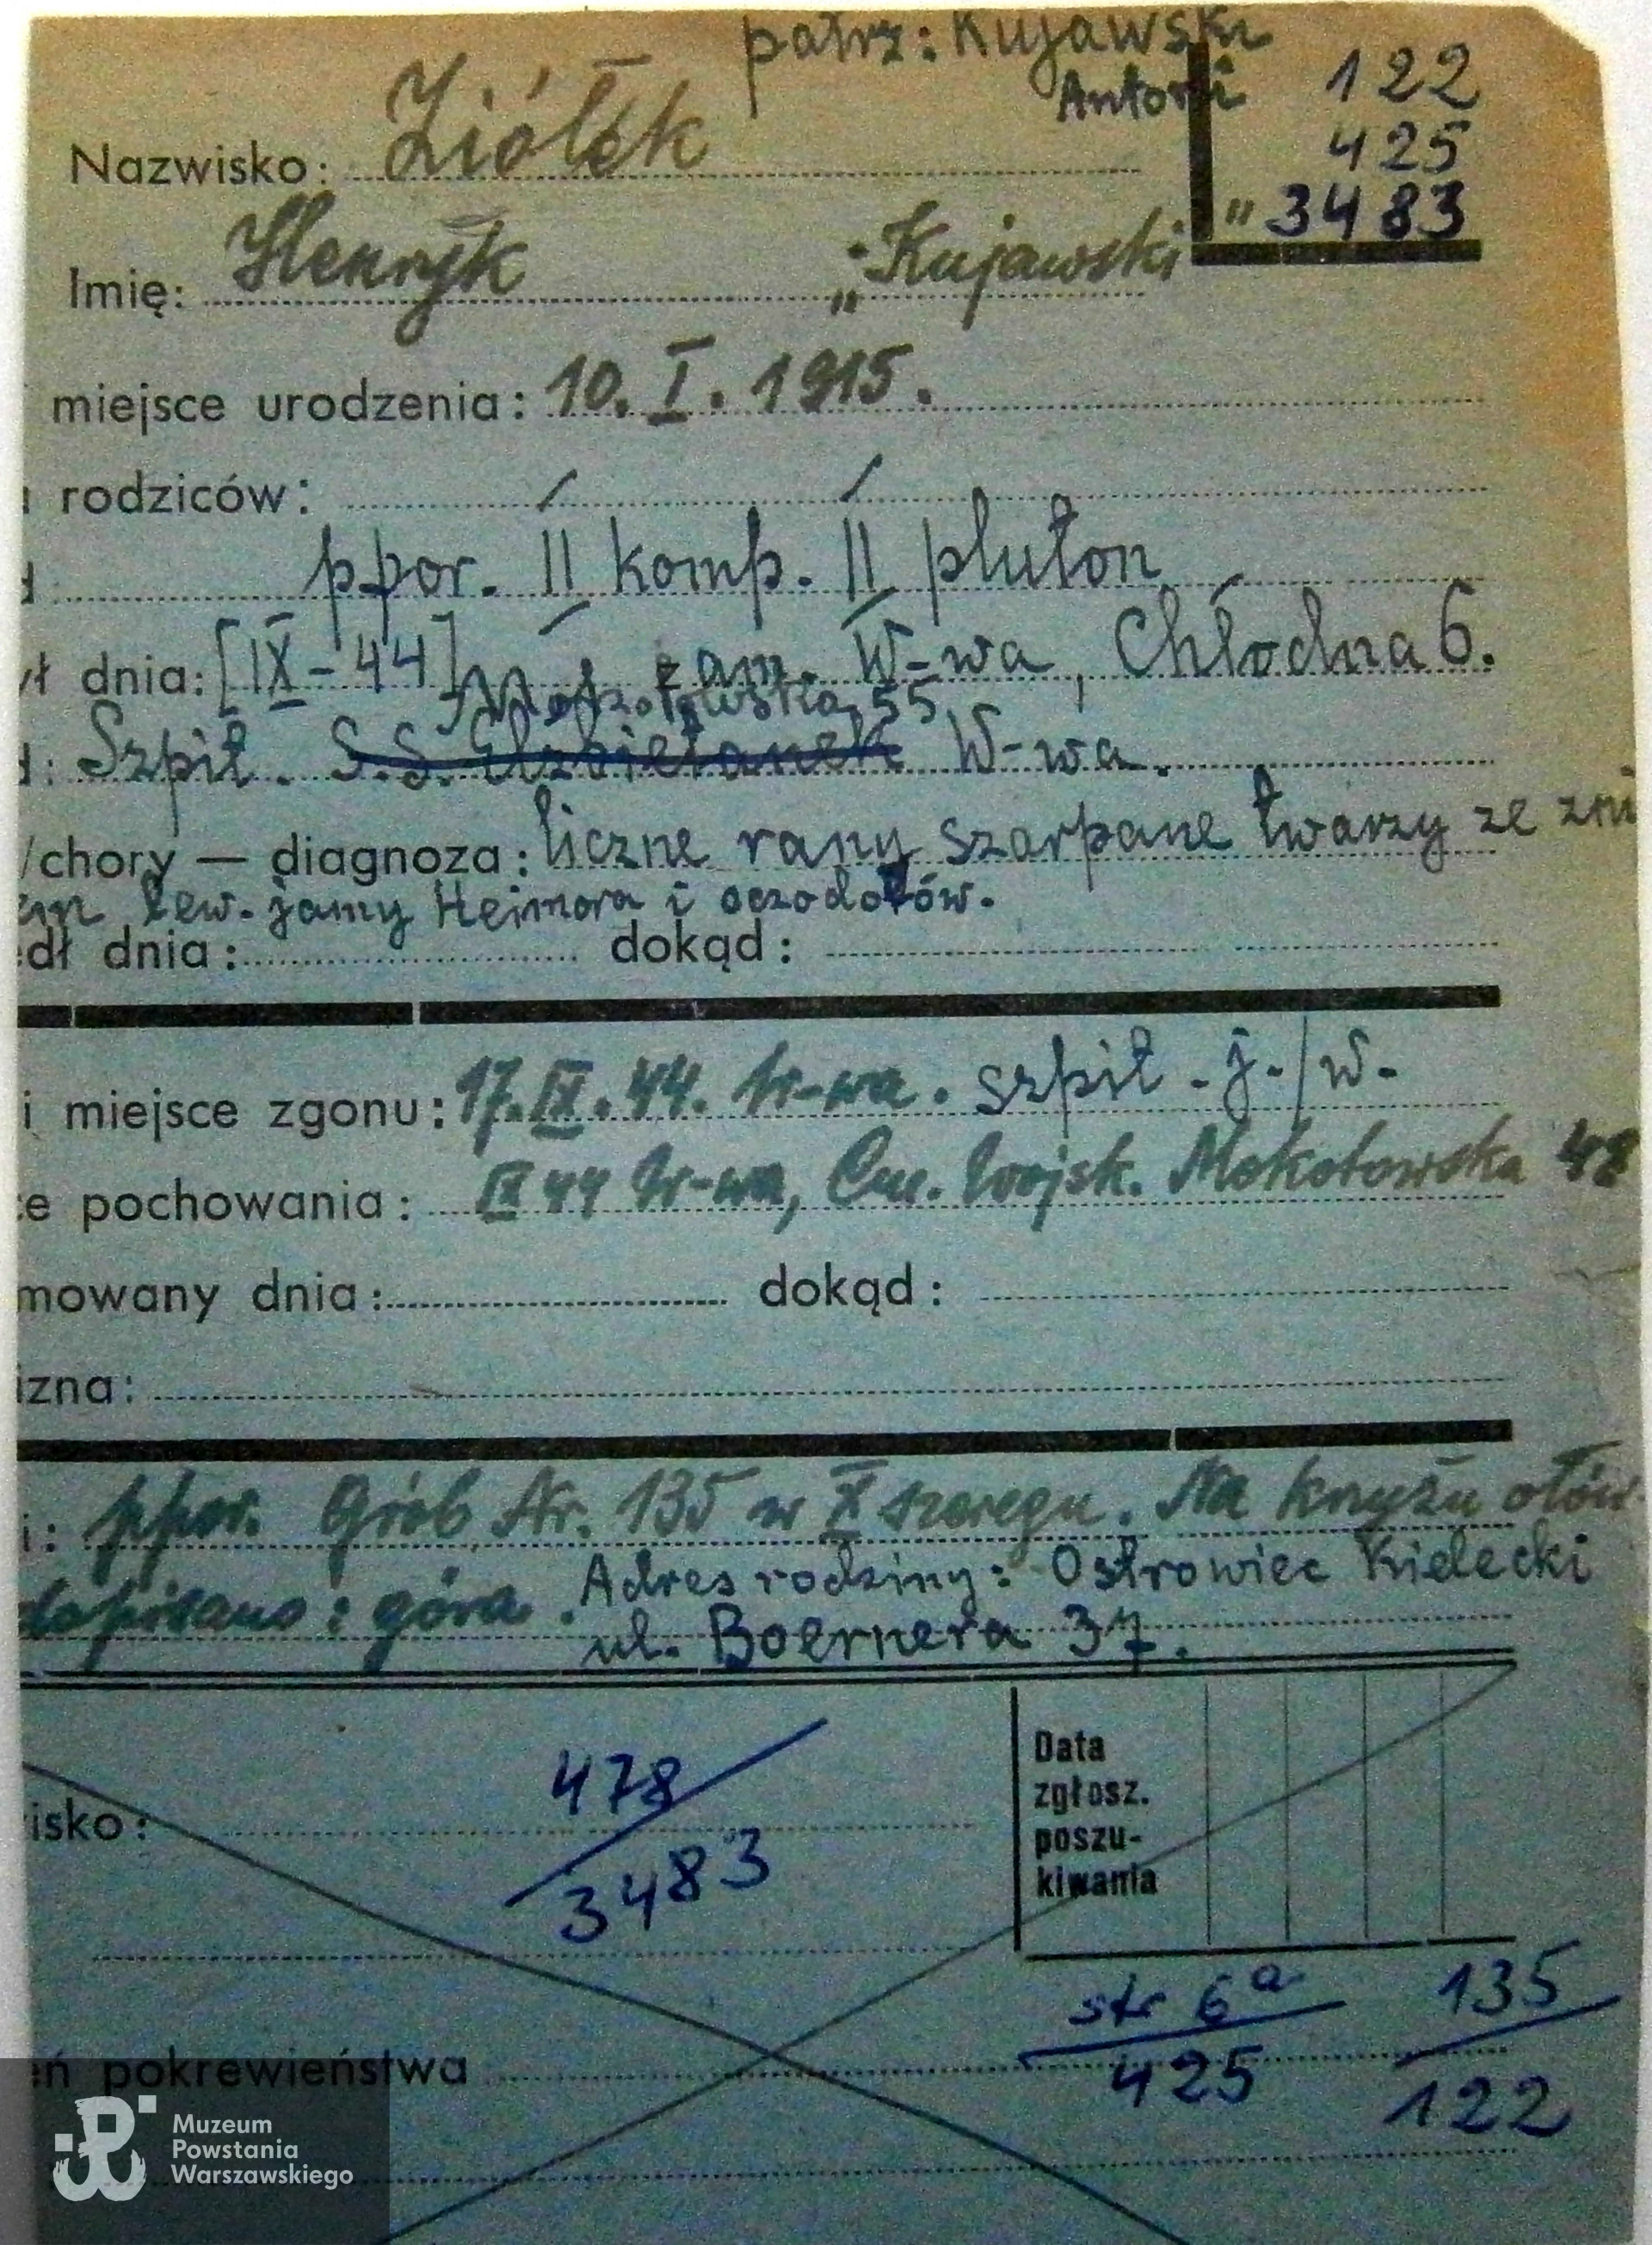 patrz: Kujawski
Antoni
122
425
" 3483
Nazwisko: Ziółek
Imię: Henryk „Kujawski
miejsce urodzenia: 10. I. 1915.
rodziców:
ppor. II komp. II pluton
ył dnia: [IX-44] zam. W-wa, Chłodna 6.
Mokotowska 55
d: Szpit. S.S. Elżbietanek W-wa.
/chory — diagnoza: liczne rany szarpane twarzy ze zni
em lew. jamy Heimora i oczodołów.
edł dnia: dokąd:
i miejsce zgonu: 17.IX.44. W-wa. szpit. j./w.
ce pochowania: IX 44 W-wa, Cm. Wojsk. Mokotowska 48
mowany dnia: dokąd:
izna:
i: ppor. Grób Nr. 135 w X szeregu. Na krzyżu ołów.
dopisano: góra. Adres rodziny: Ostrowiec Kielecki
ul. Boernera 37.
478
3483
isko:
Data
zgłosz.
poszu-
kiwania
str 6a
425
135
122
eń pokrewieństwa
Muzeum
Powstania
Warszawskiego